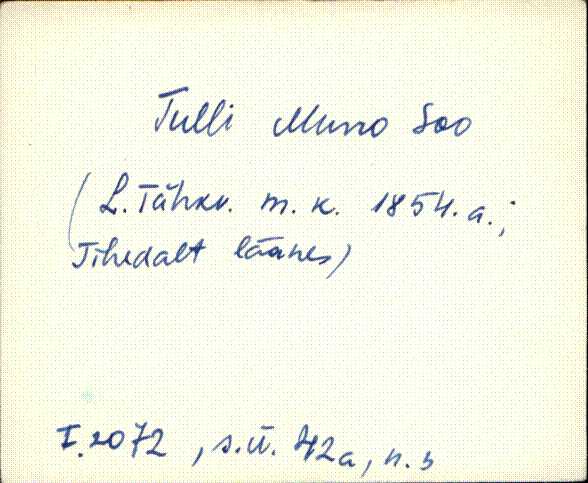 Tulli Muno Soo
(L. Tähkv. m. k. 1854. a.;
Tihedalt läänes)
I.2072, s.ü. 42a, n. 5